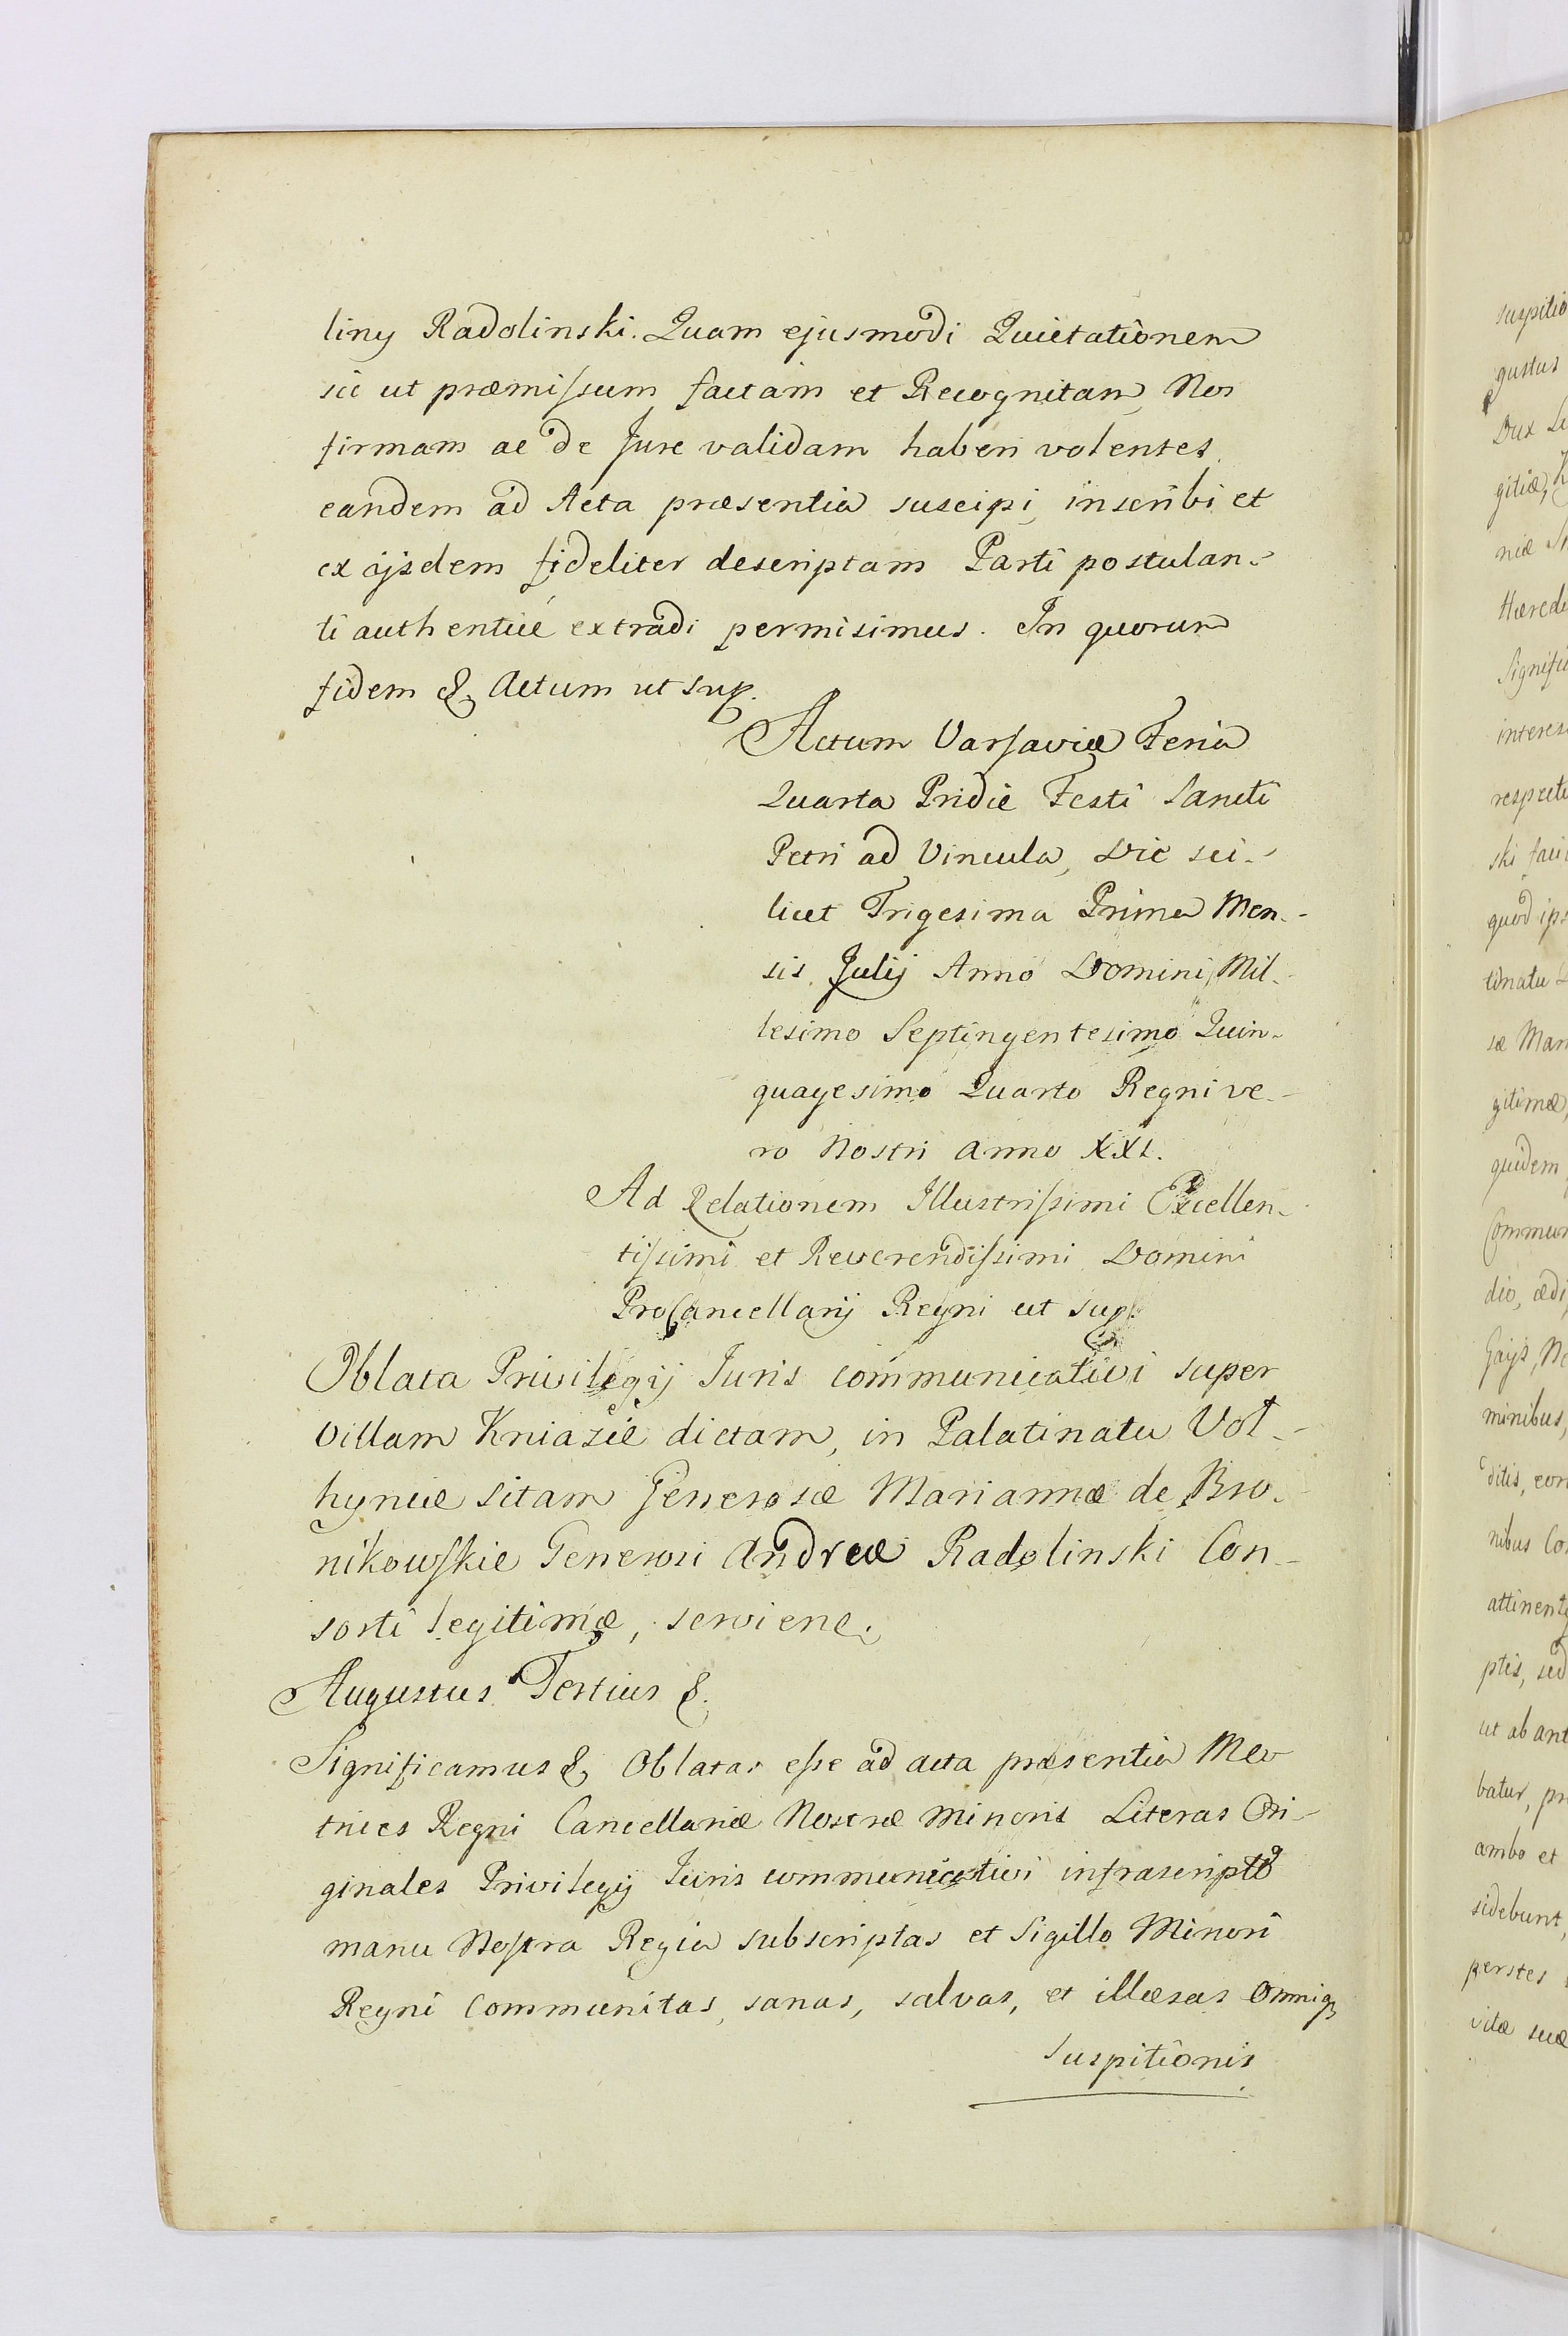 liny Radolinski. Quam ejusmodi Quietationem
sic ut præmissum factam et Recognitam, Nos
firmam ac de Jure validam haberi volentes
eandem ad Acta præsentia suscipi, inscribi et
ex ijsdem fideliter descriptam Parti postulan-
ti authenticè extradi permisimus. In quorum
fidem & Actum ut sup.
Actum Varsaviæ Feria
Quarta Pridie Festi Sancti
Petri ad Vincula, Die sci-
licet Trigesima Prima Men-
sis Julij Anno Domini Mil-
lesimo Septingentesimo Quin-
quagesimo Quarto Regni ve-
ro Nostri Anno XXI.
Ad Relationem Illustrissimi Excellen-
tissimi et Reverendissimi Domini
ProCancellarij Regni ut sup.
Oblata Privilegij Juris communicativi super
Villam Kniazie dictam, in Palatinatu Vol-
hyniæ sitam Generosæ Mariannæ de Bro-
nikowskie Generosi Andreæ Radolinski Con-
sorti legitimæ, serviens.
Augustus Tertius &.
Significamus & Oblatas esse ad acta præsentia Me
trices Regni Cancellariæ Nostræ Minoris Literas Ori-
ginales Privilegij Juris communicativi infrascripti
manu Nostra Regia subscriptas et Sigillo Minori
Regni Communitas, sanas, salvas, et illæsas Omniq
Suspitionis
suspitio
gustus
Dux Li
gitiæ, K
niæ S
Hærede
Signific
interes
respectu
ski faci
quod ips
tinatu
sæ Mari
gitimæ,
quidem
Commun
dio, ædi
Gays, Ne
minibus,
ditis, con
nibus Co
attinent
ptis, sed
ut ab ant
batur, pr
ambo et
sidebunt,
perstes
vitæ suæ